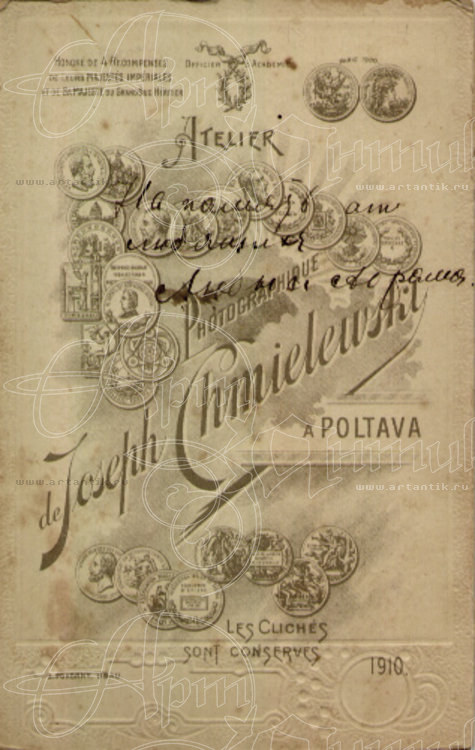 HONORÉ DE 4 RÉCOMPENSES
DE LEURS MAJESTÉS IMPÉRIALES
ET DE SA MAJESTÉ DU GRAND DUC HÉRITIER
OFFICIER D'ACADEMIE
PARIS 1900
ATELIER
На память от
любящих
PHOTOGRAPHIQUE
de Joseph Chmielewski
A POLTAVA
LES CLICHÉS
SONT CONSERVÉS
1910.
www.artantik.ru
www.artantik.ru
www.artantik.ru
www.artantik.ru